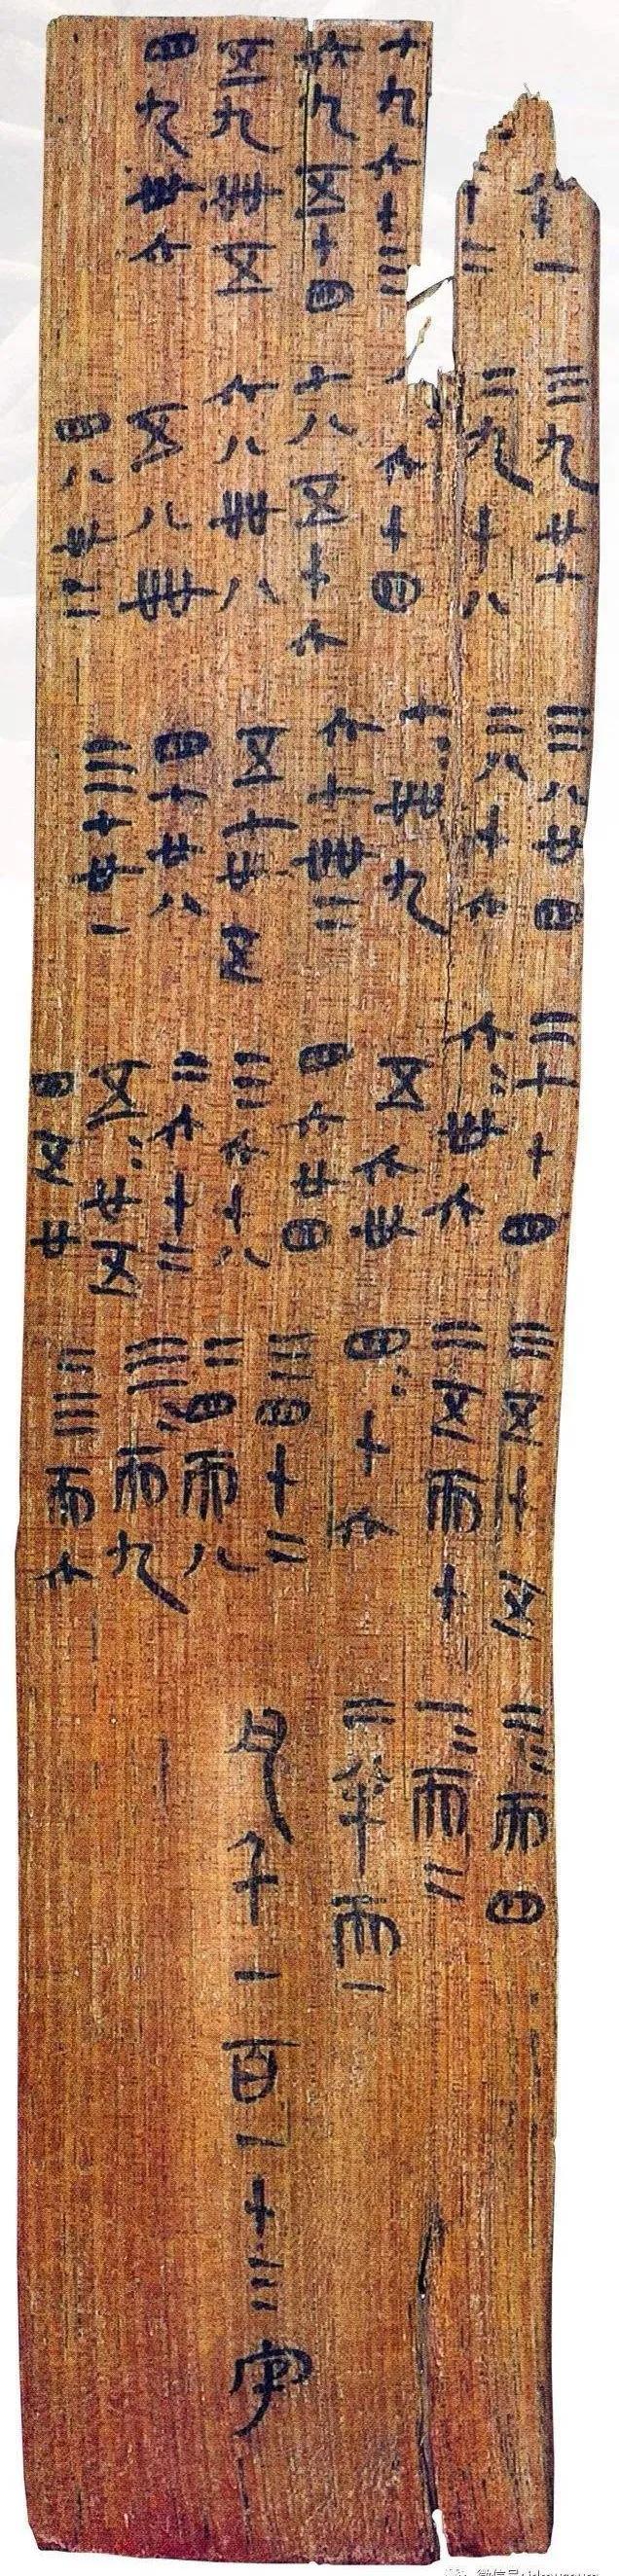 十一
十二
七九六十三
六九五十四
五九卌五
四九卅六
三九廿七
二九十八
六十四
七八五十六
六八卌八
五八卌
四八卅二
三八廿四
二八十六
七=卌九
六七卌二
五七卅五
四七廿八
三七廿一
二七十四
六=卅六
五六卅
四六廿四
三六十八
二六十二
五=廿五
四五廿
三五十五
二五而十
四=十六
三四十二
二四而八
三=而九
二三而六
二=而四
一=而二
二半而一
凡千一百一十三字